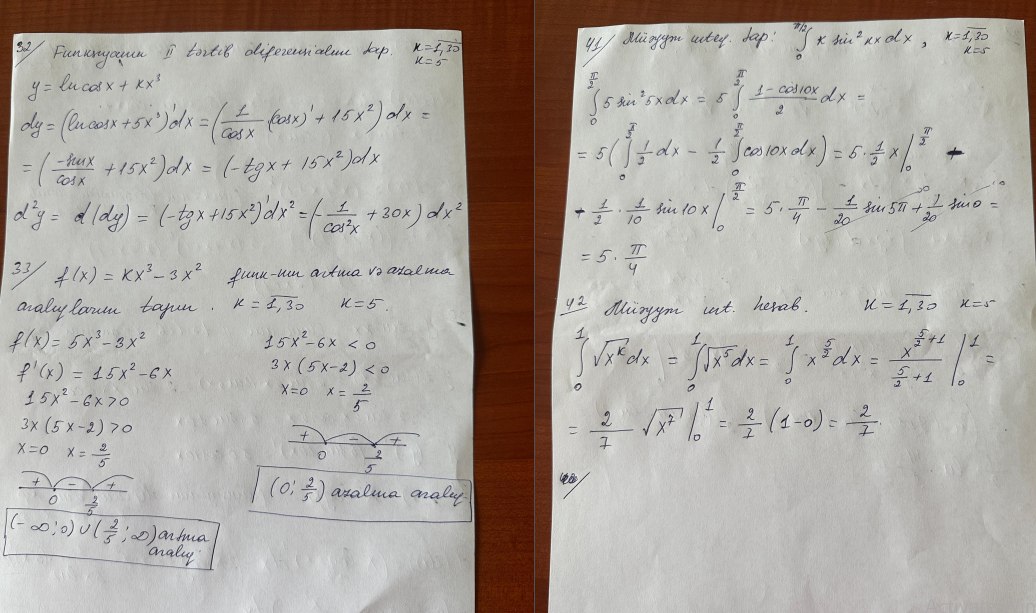 32/ Funksiyanın II tərtib diferensialını tap. k=1,30
k=5
y = ln cosx + kx³
dy = (ln cosx + 5x³)'dx = (1/cosx (cosx)' + 15x²) dx =
= (-sinx/cosx + 15x²) dx = (-tgx + 15x²) dx
d²y = d(dy) = (-tgx + 15x²)'dx² = (-1/cos²x + 30x) dx²
33/ f(x) = kx³ - 3x² funk-nın artma və azalma
aralıqlarını tapın. k = 1,30 k=5.
f(x) = 5x³ - 3x²
f'(x) = 15x² - 6x
15x² - 6x > 0
3x(5x-2) > 0
x=0 x=2/5
+ - +
0 2/5
(-∞;0) ∪ (2/5;∞) artma
aralıq
15x² - 6x < 0
3x(5x-2) < 0
x=0 x=2/5
+ - +
0 2/5
(0; 2/5) azalma aralıq
41/ Müəyyən inteq. tap: ∫₀^π/2 k sin² kx dx, k=1,30
k=5
∫₀^π/2 5 sin² 5x dx = 5 ∫₀^π/2 (1-cos10x)/2 dx =
= 5(∫₀^π/2 1/2 dx - 1/2 ∫₀^π/2 cos10x dx) = 5·1/2 x|₀^π/2
- 1/2 · 1/10 sin10x|₀^π/2 = 5·π/4 - 1/20 sin5π + 1/20 sin0 =
= 5·π/4
42 Müəyyən int. hesab. k = 1,30 k=5
∫₀¹ √x^k dx = ∫₀¹ √x⁵ dx = ∫₀¹ x^5/2 dx = x^(5/2+1)/(5/2+1) |₀¹ =
= 2/7 √x⁷ |₀¹ = 2/7 (1-0) = 2/7.